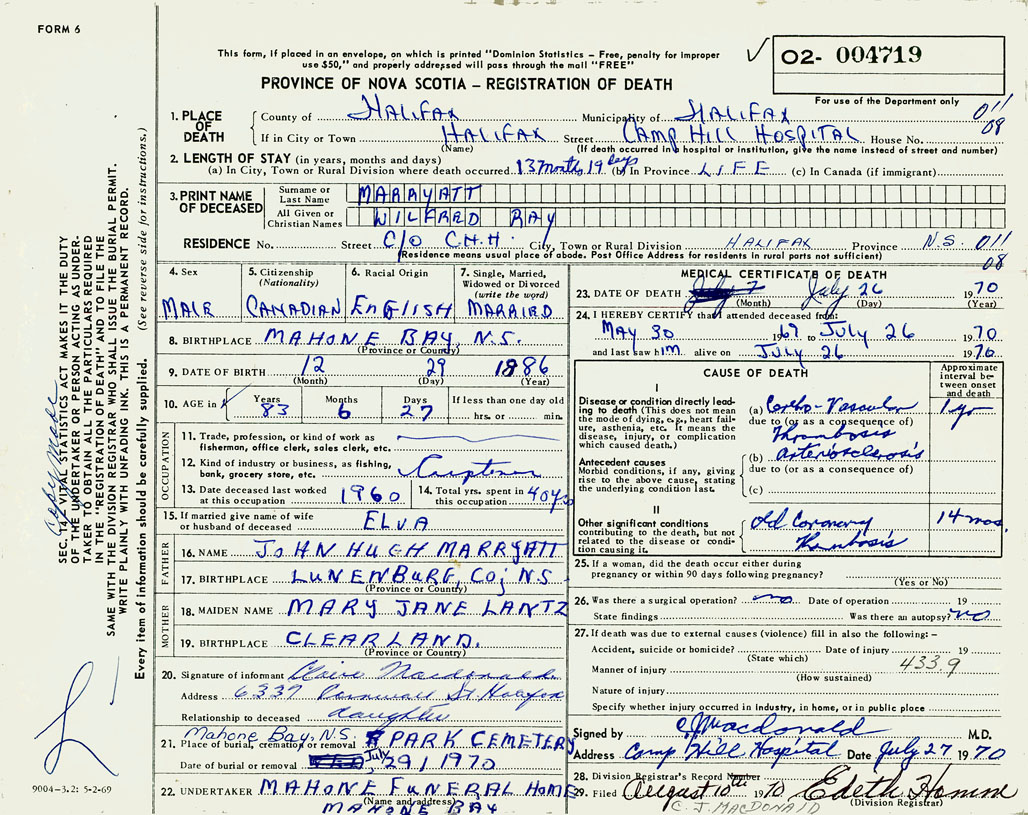 FORM 6
This form, if placed in an envelope, on which is printed "Dominion Statistics – Free, penalty for improper
use $50," and properly addressed will pass through the mail "FREE"
02- 004719
PROVINCE OF NOVA SCOTIA – REGISTRATION OF DEATH
For use of the Department only
1. PLACE OF DEATH County of HALIFAX Municipality of HALIFAX 011
If in City or Town HALIFAX Street CAMP HILL HOSPITAL House No. 08
(Name) (If death occurred in hospital or institution, give the name instead of street and number)
2. LENGTH OF STAY (in years, months and days)
(a) In City, Town or Rural Division where death occurred 13 months 19 days (b) In Province LIFE (c) In Canada (if immigrant)
3. PRINT NAME OF DECEASED Surname or Last Name MARRYATT
All Given or Christian Names WILFRED RAY
RESIDENCE No. Street C/O C.H.H. City, Town or Rural Division HALIFAX Province N.S. 011
(Residence means usual place of abode. Post Office Address for residents in rural parts not sufficient) 08
4. Sex MALE
5. Citizenship (Nationality) CANADIAN
6. Racial Origin ENGLISH
7. Single, Married, Widowed or Divorced (write the word) MARRIED
8. BIRTHPLACE MAHONE BAY, N.S.
(Province or County)
9. DATE OF BIRTH 12 29 1886
(Month) (Day) (Year)
10. AGE in Years 83 Months 6 Days 27 If less than one day old hrs. or min.
OCCUPATION
11. Trade, profession, or kind of work as
fisherman, office clerk, sales clerk, etc.
12. Kind of industry or business, as fishing,
bank, grocery store, etc.
13. Date deceased last worked at this occupation 1960
14. Total yrs. spent in this occupation 40 yrs
15. If married give name of wife or husband of deceased ELVA
FATHER
16. NAME JOHN HUGH MARRYATT
17. BIRTHPLACE LUNENBURG, CO; N.S.
(Province or County)
MOTHER
18. MAIDEN NAME MARY JANE LANTZ
19. BIRTHPLACE CLEARLAND.
(Province or County)
20. Signature of informant Claire Macdonald
Address 6337 St. Halifax
Relationship to deceased daughter
Mahone Bay, N.S.
21. Place of burial, cremation or removal PARK CEMETERY
Date of burial or removal July 29/1970
22. UNDERTAKER MAHONE FUNERAL HOME
(Name and address)
MAHONE BAY
MEDICAL CERTIFICATE OF DEATH
23. DATE OF DEATH July 26 1970
(Month) (Day) (Year)
24. I HEREBY CERTIFY that I attended deceased from:
MAY 30 1969 to JULY 26 1970
and last saw him alive on JULY 26 1970
CAUSE OF DEATH
Approximate interval between onset and death
I
Disease or condition directly leading to death (This does not mean the mode of dying, e.g., heart failure, asthenia, etc. It means the disease, injury, or complication which caused death.)
(a) Cerebro-Vascular 1 yr
due to (or as a consequence of)
Thrombosis
Antecedent causes
Morbid conditions, if any, giving rise to the above cause, stating the underlying condition last.
(b) arteriosclerosis
due to (or as a consequence of)
(c)
II
Other significant conditions
contributing to the death, but not related to the disease or condition causing it.
Old Coronary 14 mos.
Thrombosis
25. If a woman, did the death occur either during
pregnancy or within 90 days following pregnancy?
(Yes or No)
26. Was there a surgical operation? no Date of operation 19
State findings Was there an autopsy? no
27. If death was due to external causes (violence) fill in also the following: –
Accident, suicide or homicide? Date of injury 19
(State which) 433.9
Manner of injury
(How sustained)
Nature of injury
Specify whether injury occurred in industry, in home, or in public place
Signed by C J Macdonald M.D.
Address Camp Hill Hospital Date July 27 1970
28. Division Registrar's Record Number
29. Filed August 10th 1970
(Division Registrar)
C. J. MACDONALD
SEC. 14. VITAL STATISTICS ACT MAKES IT THE DUTY
OF THE UNDERTAKER OR PERSON ACTING AS UNDER-
TAKER TO OBTAIN ALL THE PARTICULARS REQUIRED
IN THE "REGISTRATION OF DEATH" AND TO FILE THE
SAME WITH THE DIVISION REGISTRAR WHO SHALL ISSUE THE BURIAL PERMIT.
WRITE PLAINLY WITH UNFADING INK. THIS IS A PERMANENT RECORD.
Every item of information should be carefully supplied. (See reverse side for instructions.)
9004-3.2: 5-2-69